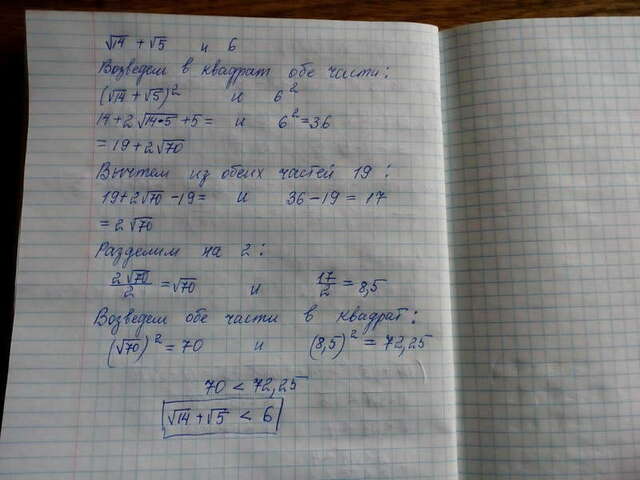 √14 + √5 и 6
Возведем в квадрат обе части:
(√14 + √5)² и 6²
14 + 2√14·5 + 5 = и 6² = 36
= 19 + 2√70
Вычтем из обеих частей 19:
19 + 2√70 - 19 = и 36 - 19 = 17
= 2√70
Разделим на 2:
2√70/2 = √70 и 17/2 = 8,5
Возведем обе части в квадрат:
(√70)² = 70 и (8,5)² = 72,25
70 < 72,25
√14 + √5 < 6